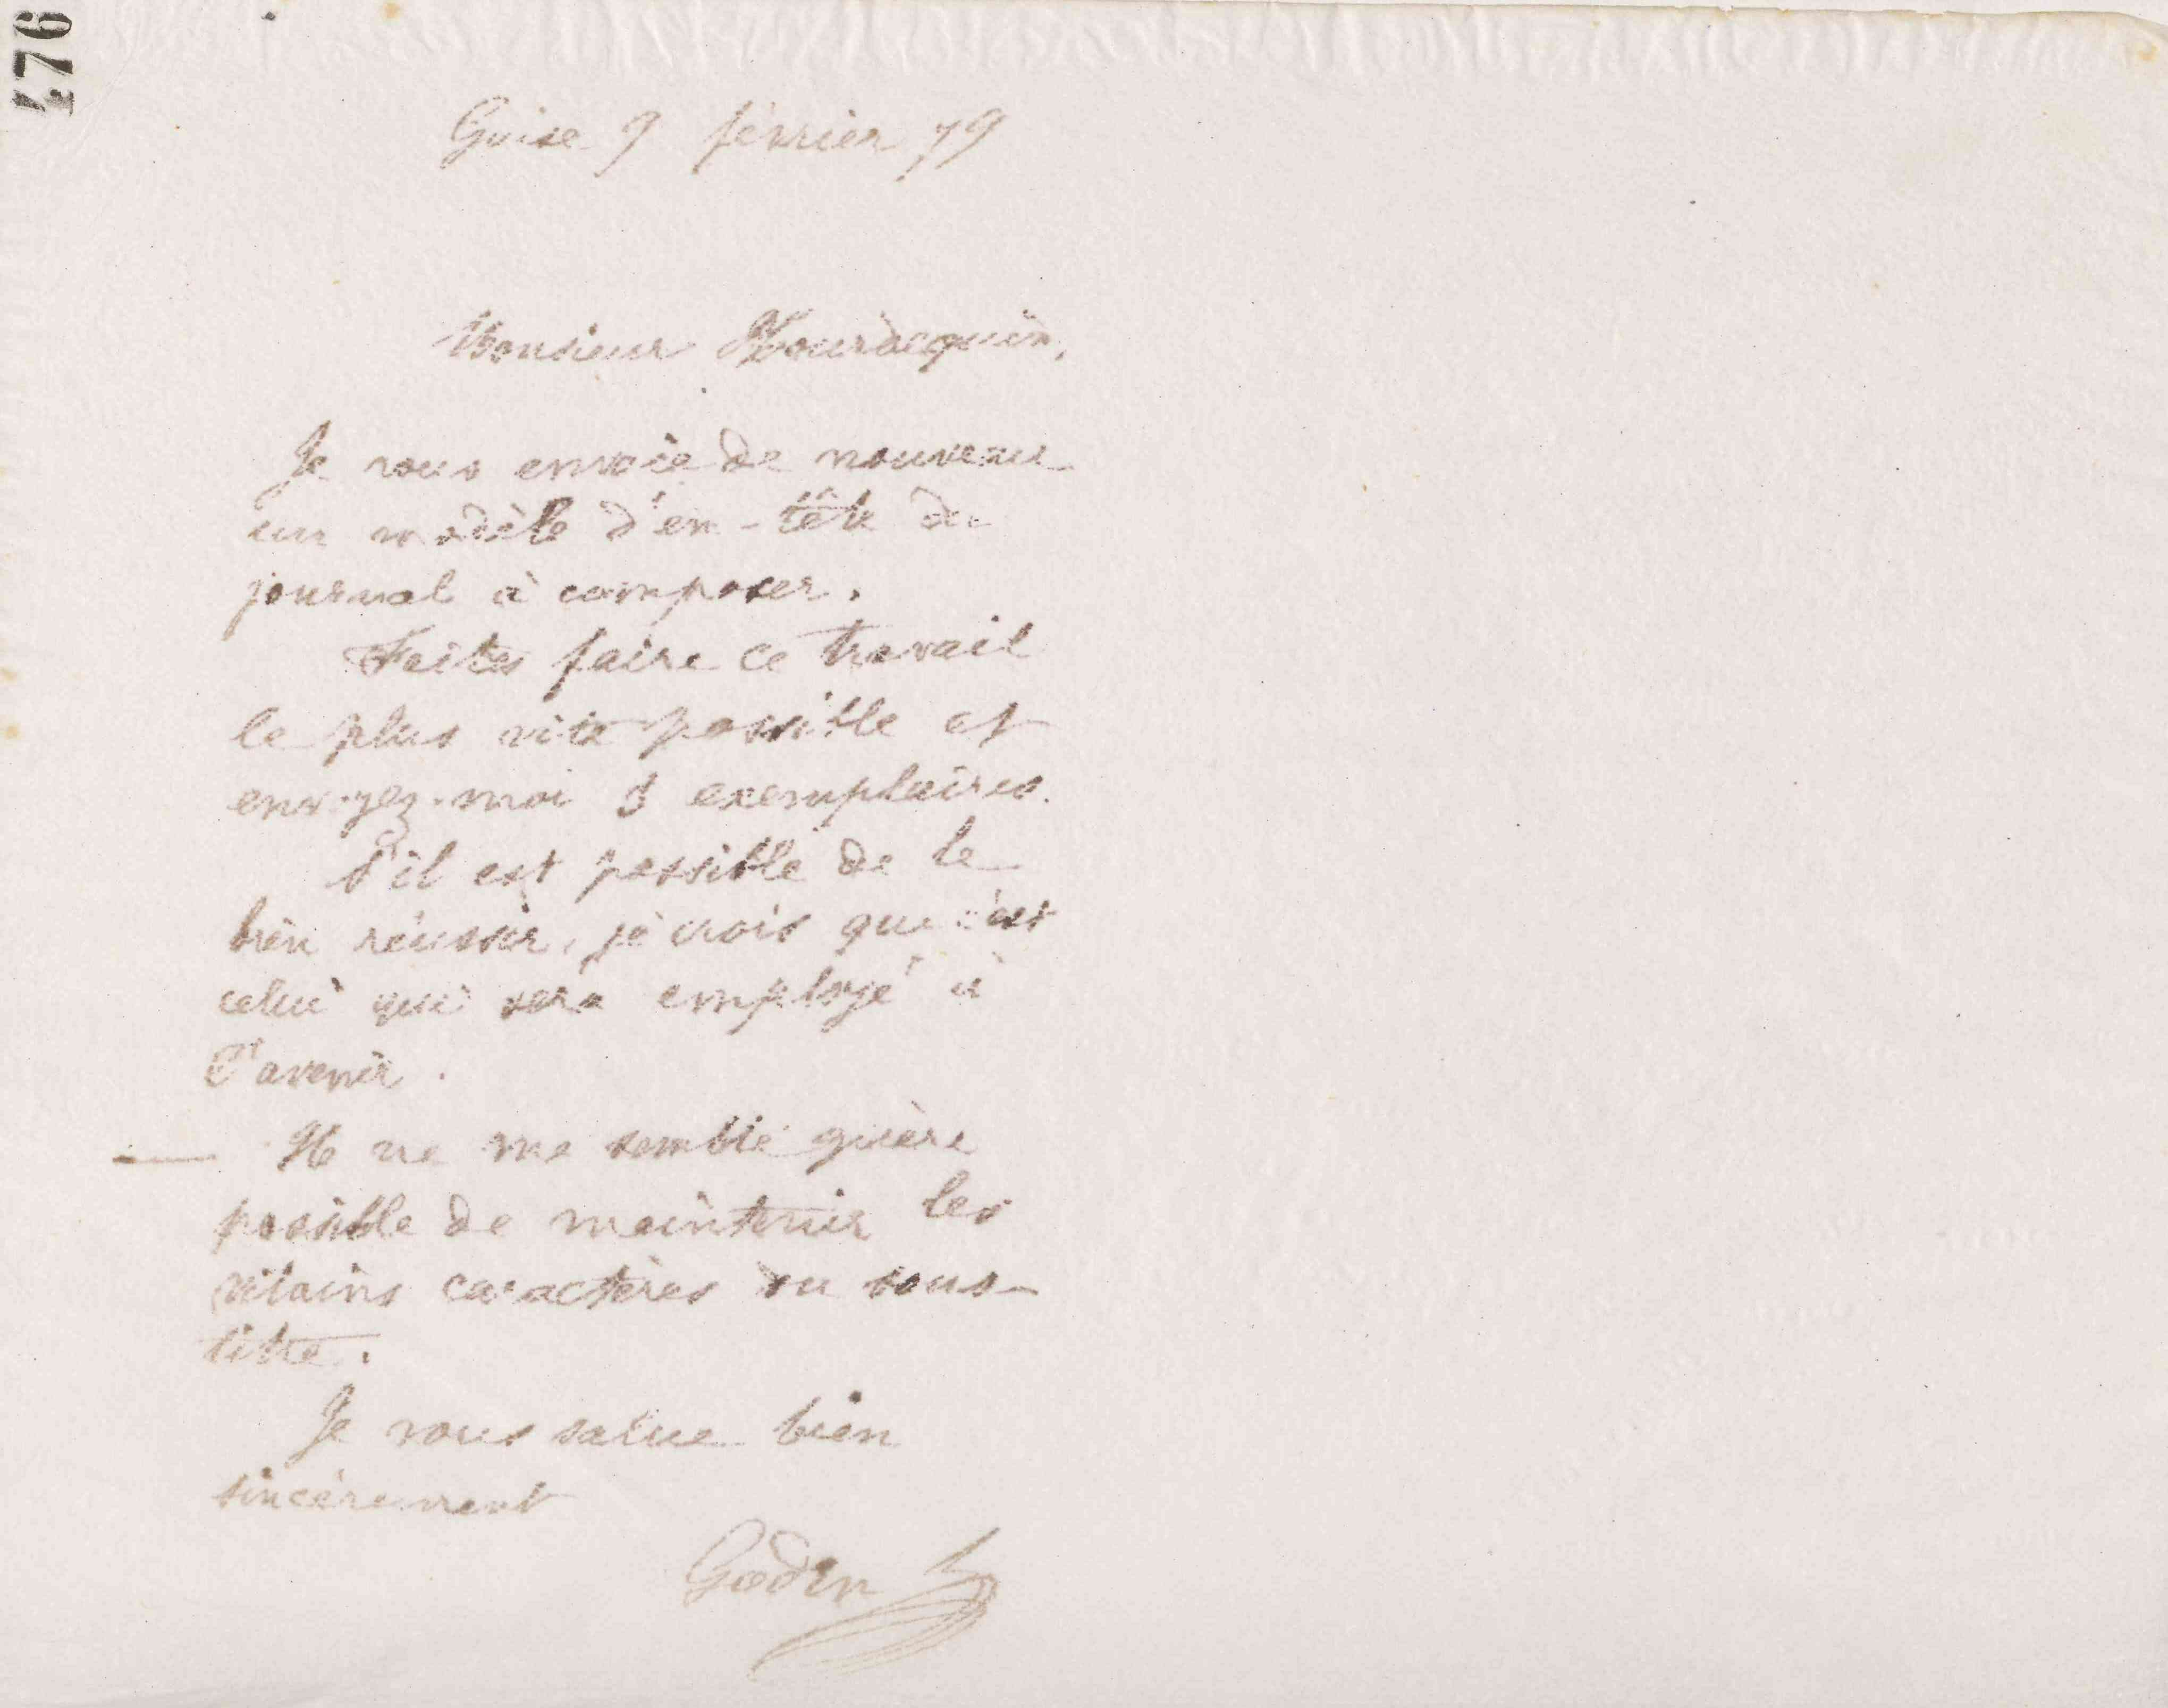 476
Guise 9 février 79
Monsieur Hourdequin,
Je vous envoie de nouveau
un modèle d'en-tête du
journal à composer.
Faites faire ce travail
le plus vite possible et
envoyez-moi 3 exemplaires.
S'il est possible de le
bien réussir, je crois que c'est
celui qui sera employé à
l'avenir.
Il ne me semble guère
possible de maintenir les
vilains caractères du sous-
titre.
Je vous salue bien
sincèrement
Godin